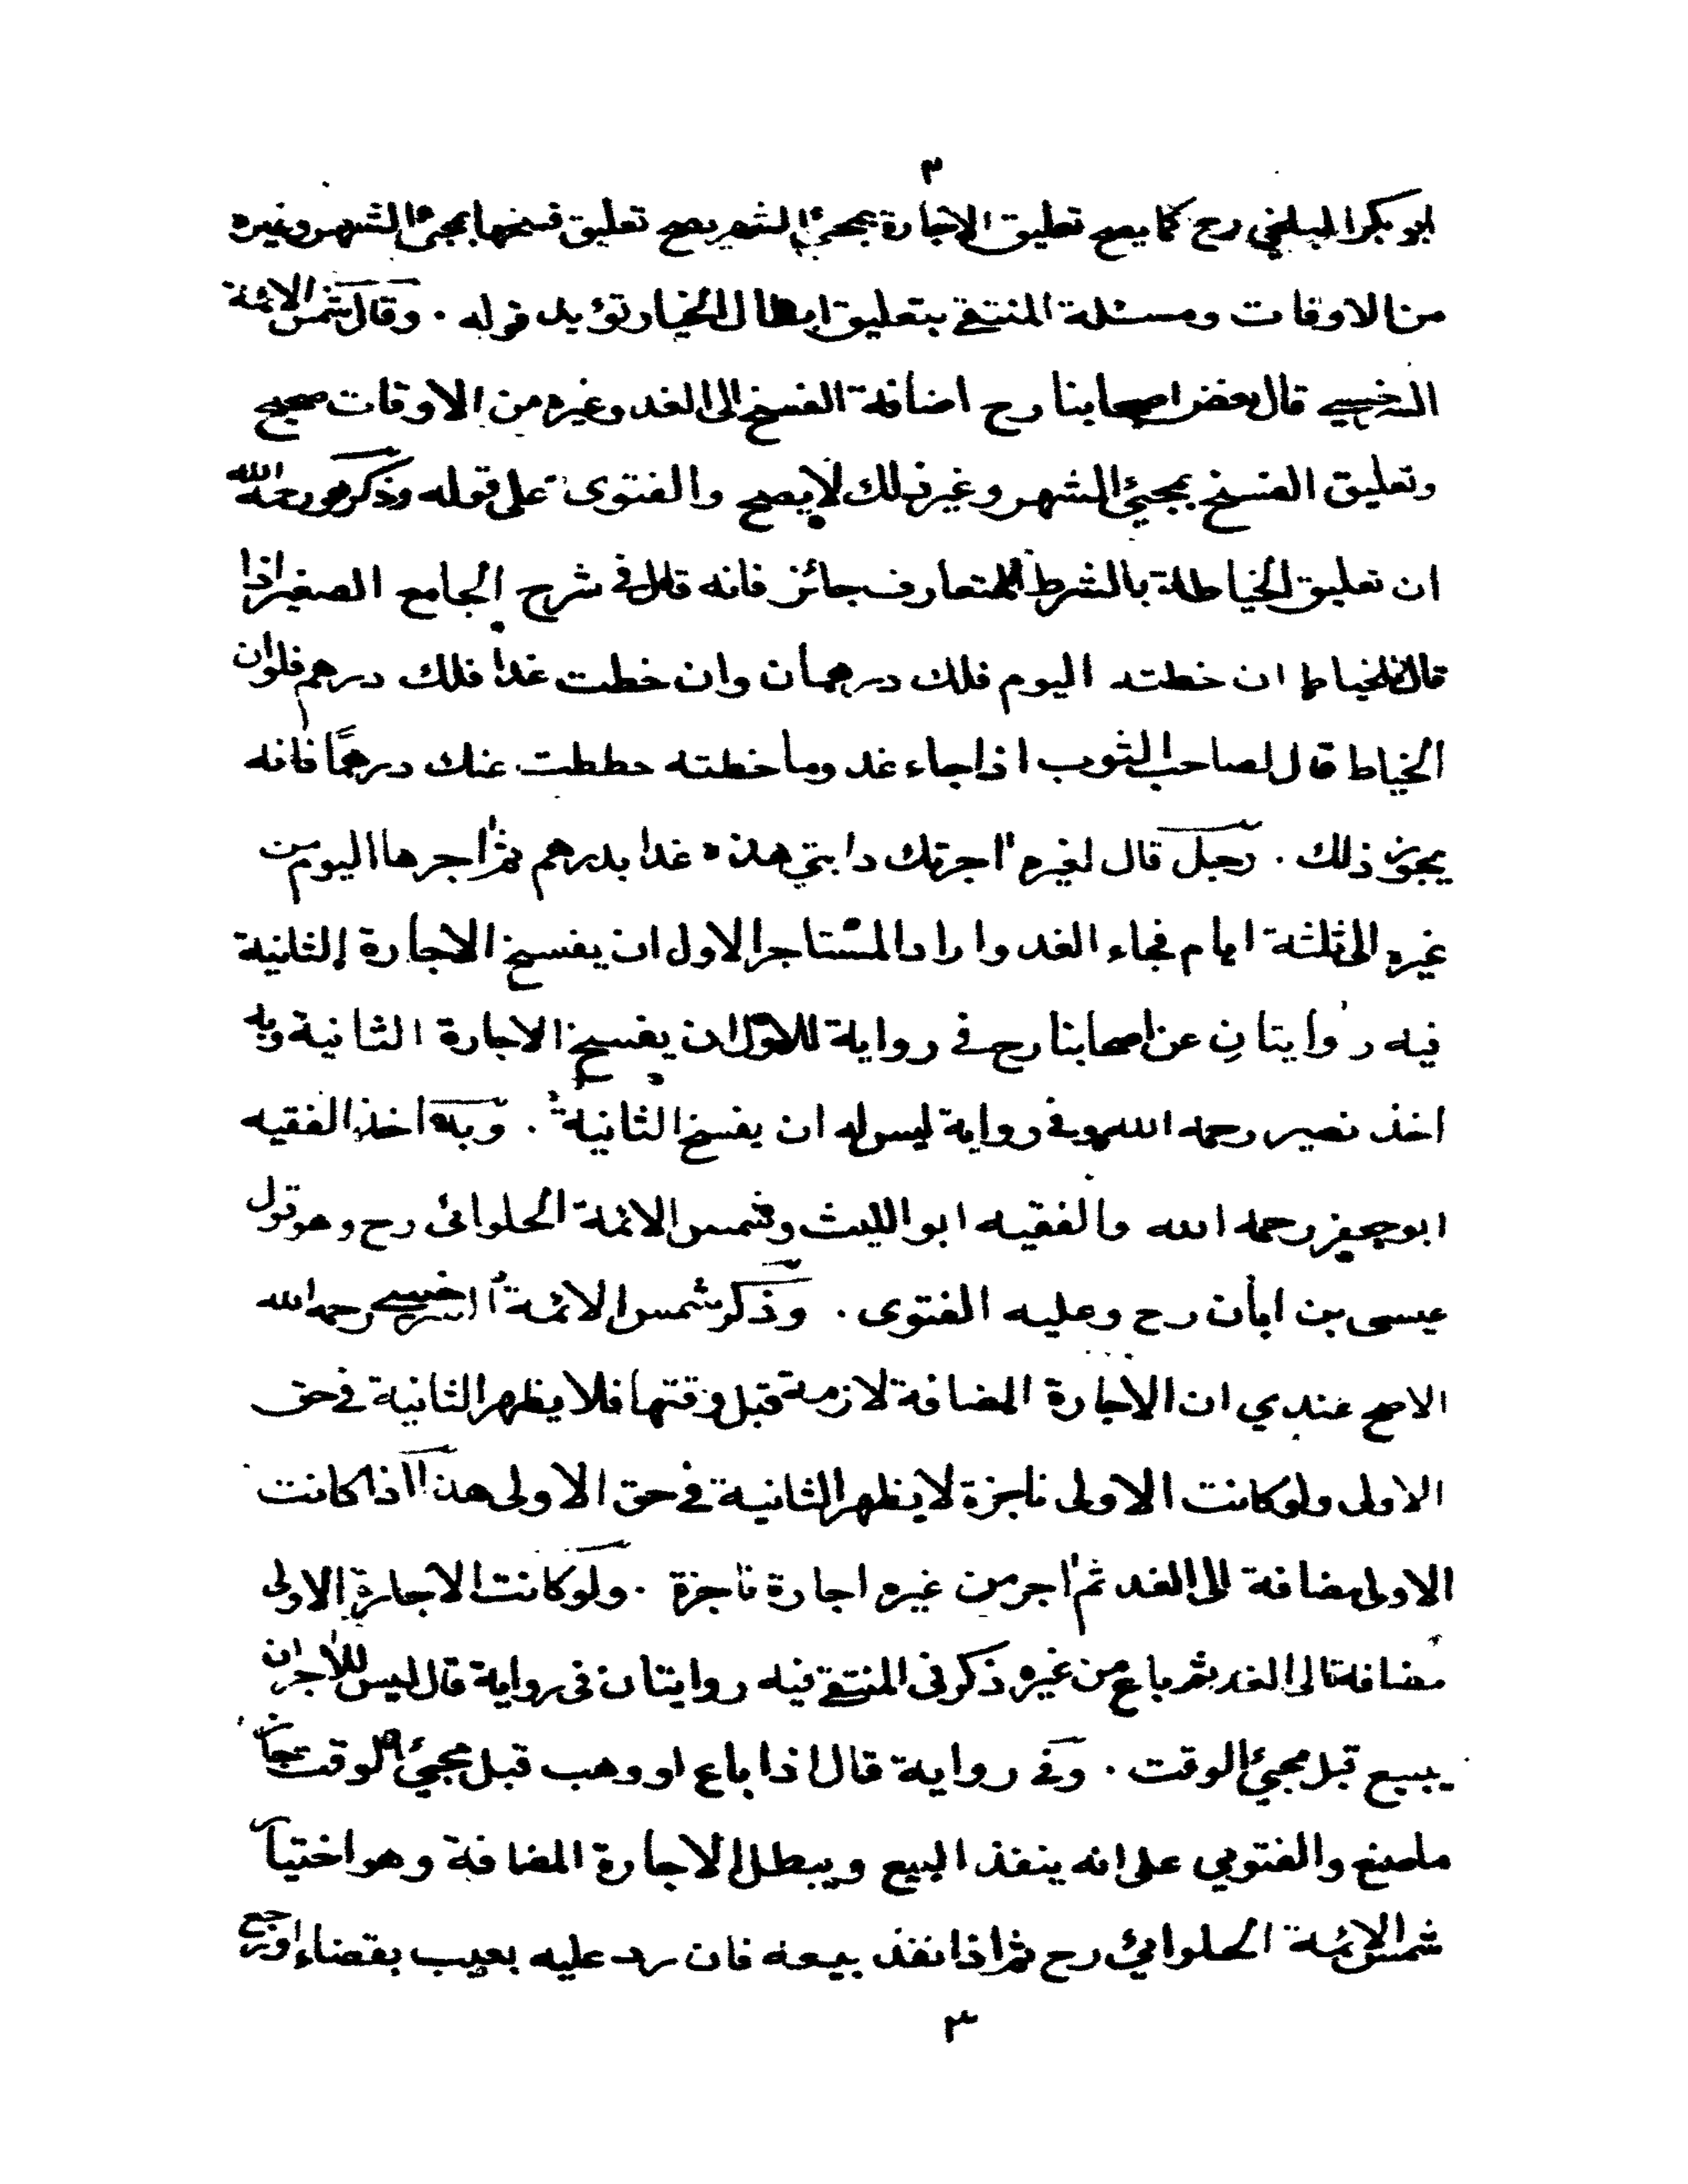 ٣
ابو بكر البلخي رح كما يصح تعليق الاجارة بمجئ الشهر يصح تعليق فسخها بمجئ الشهر وغيره
من الاوقات ومسئلة المنتقى بتعليق ابطال الخيار تؤيد قوله . وقال شمس الائمة
السرخسي قال بعض اصحابنا رح اضافة الفسخ الى الغد وغيره من الاوقات صحيح
وتعليق الفسخ بمجئ الشهر وغير ذلك لا يصح والفتوى على قوله وذكر هو رحمه الله
ان تعليق الخياطة بالشرط المتعارف جائز فانه قال في شرح الجامع الصغير اذا
قال للخياط ان خطته اليوم فلك درهمان وان خطت غدا فلك درهم فلو ان
الخياط قال لصاحب الثوب اذا جاء غد وما خطته حططت عنك درهمًا فانه
يجوز ذلك . رجل قال لغيره اجرتك دابتي هذه غدا بدرهم ثم اجرها اليوم من
غيره الى ثلثة ايام فجاء الغد واراد المستاجر الاول ان يفسخ الاجارة الثانية
فيه روايتان عن اصحابنا رح في رواية للاول ان يفسخ الاجارة الثانية وبه
اخذ نصير رحمه الله وفي رواية ليس له ان يفسخ الثانية . وبه اخذ الفقيه
ابو جعفر رحمه الله والفقيه ابو الليث وشمس الائمة الحلوائى رح وهو قول
عيسى بن ابان رح وعليه الفتوى . وذكر شمس الائمة السرخسي رحمه الله
الاصح عندي ان الاجارة المضافة لازمة قبل وقتها فلا يظهر الثانية في حق
الاولى ولو كانت الاولى ناجزة لا يظهر الثانية في حق الاولى هذا اذا كانت
الاولى مضافة الى الغد ثم اجر من غيره اجارة ناجزة . ولو كانت الاجارة الاولى
مضافة الى الغد ثم باع من غيره ذكر فى المنتقى فيه روايتان فى رواية قال ليس للآجر ان
يبيع قبل مجئ الوقت . وفي رواية قال اذا باع او وهب قبل مجئ الوقت جاز
ما صنع والفتوى على انه ينفذ البيع ويبطل الاجارة المضافة وهو اختيار
شمس الائمة الحلوائي رح ثم اذا نفذ بيعه فان رد عليه بعيب بقضاء او رجع
٣